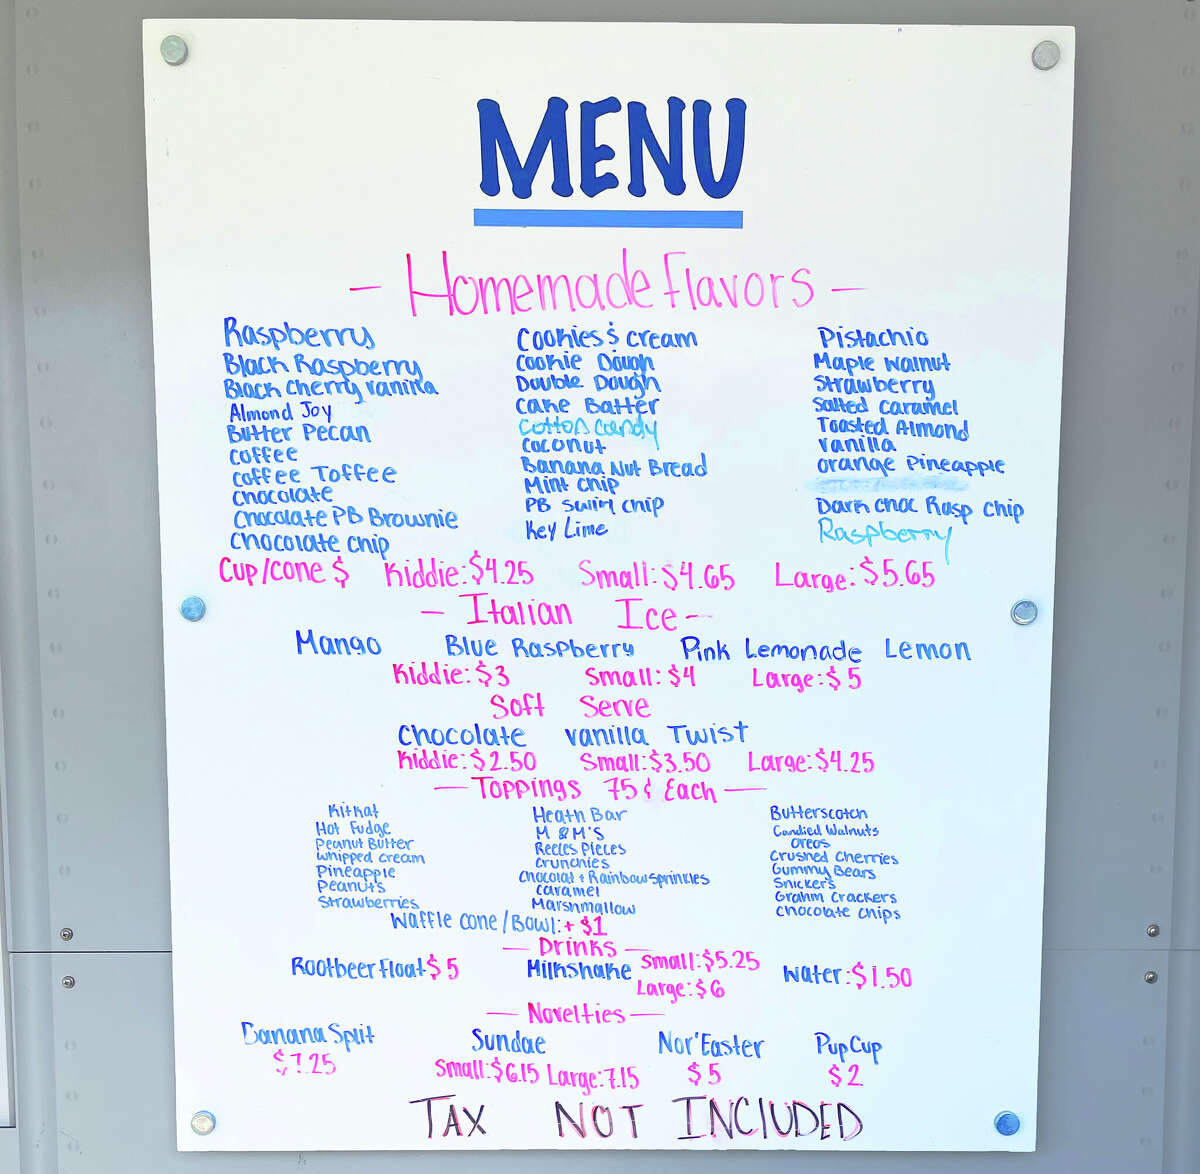 MENU
- Homemade Flavors -
Raspberry
Black Raspberry
Black Cherry Vanilla
Almond Joy
Butter Pecan
Coffee
Coffee Toffee
Chocolate
Chocolate PB Brownie
Chocolate Chip
Cookies & Cream
Cookie Dough
Double Dough
Cake Batter
Cotton Candy
Coconut
Banana Nut Bread
Mint Chip
PB Swirl Chip
Key Lime
Pistachio
Maple Walnut
Strawberry
Salted Caramel
Toasted Almond
Vanilla
Orange Pineapple
Dark Choc Rasp Chip
Raspberry
Cup/Cone $ Kiddie: $4.25 Small: $4.65 Large: $5.65
- Italian Ice -
Mango Blue Raspberry Pink Lemonade Lemon
Kiddie: $3 Small: $4 Large: $5
Soft Serve
Chocolate Vanilla Twist
Kiddie: $2.50 Small: $3.50 Large: $4.25
- Toppings 75¢ Each -
Kitkat
Hot Fudge
Peanut Butter
Whipped Cream
Pineapple
Peanut's
Strawberries
Heath Bar
M & M'S
Reeces Pieces
Crunchies
Chocolat + Rainbow sprinkles
Caramel
Marshmallow
Butterscotch
Candied Walnuts
Oreos
Crushed Cherries
Gummy Bears
Snickers
Grahm Crackers
Chocolate Chips
Waffle Cone/Bowl: + $1
- Drinks -
Rootbeer Float $5 Milkshake Small: $5.25 Water: $1.50
Large: $6
- Novelties -
Banana Split Sundae Nor'Easter Pup Cup
$7.25 Small: $6.15 Large: 7.15 $5 $2
TAX NOT INCLUDED